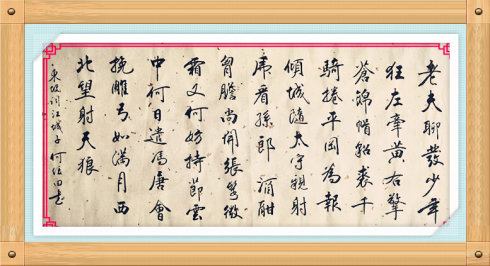 老夫聊發少年
狂左牽黄右擎
蒼錦帽貂裘千
騎捲平岡為報
傾城隨太守親射
虎看孫郎酒酣
胷膽尚開張鬢微
霜又何妨持節雲
中何日遣馮唐會
挽雕弓如滿月西
北望射天狼
東坡词江城子何